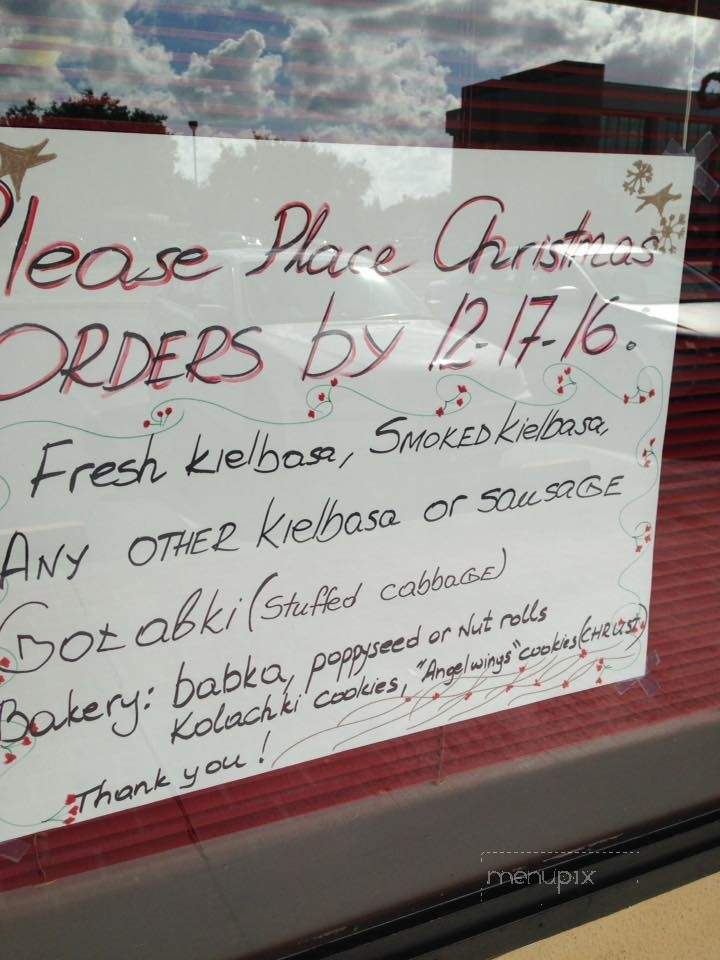 Please Place Christmas
ORDERS by 12-17-16.
Fresh kielbasa, SMOKED kielbasa,
ANY OTHER kielbasa or sausaGE
Gołabki (stuffed cabbaGE)
Bakery: babka, poppyseed or Nut rolls
Kolachki cookies, "Angel wings" cookies (CHRUST)
Thank you!
menupix